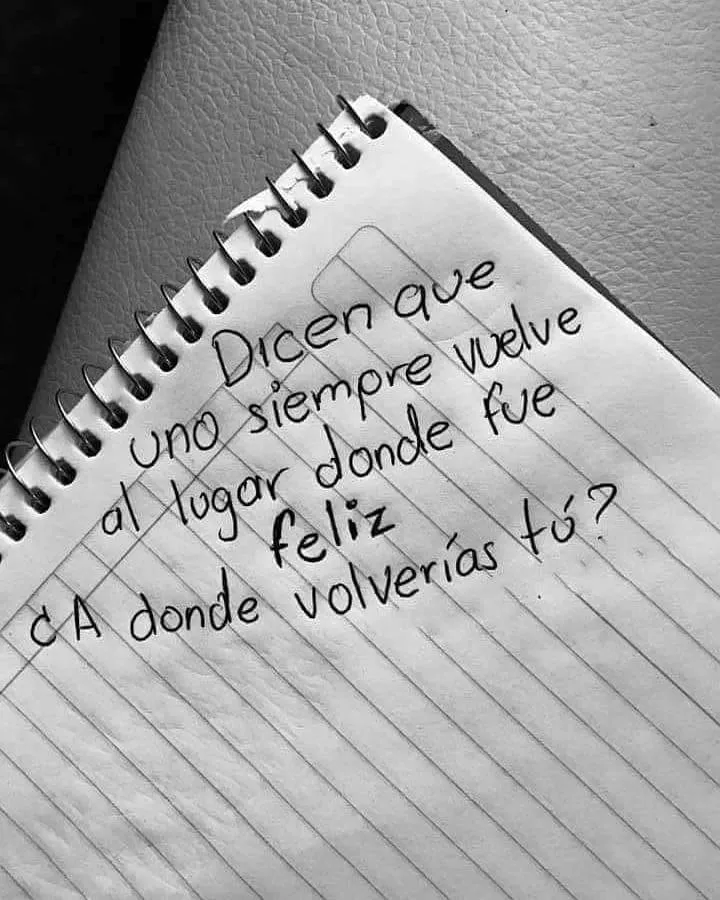 Dicen que
uno siempre vuelve
al lugar donde fue
feliz
¿A donde volverías tú?